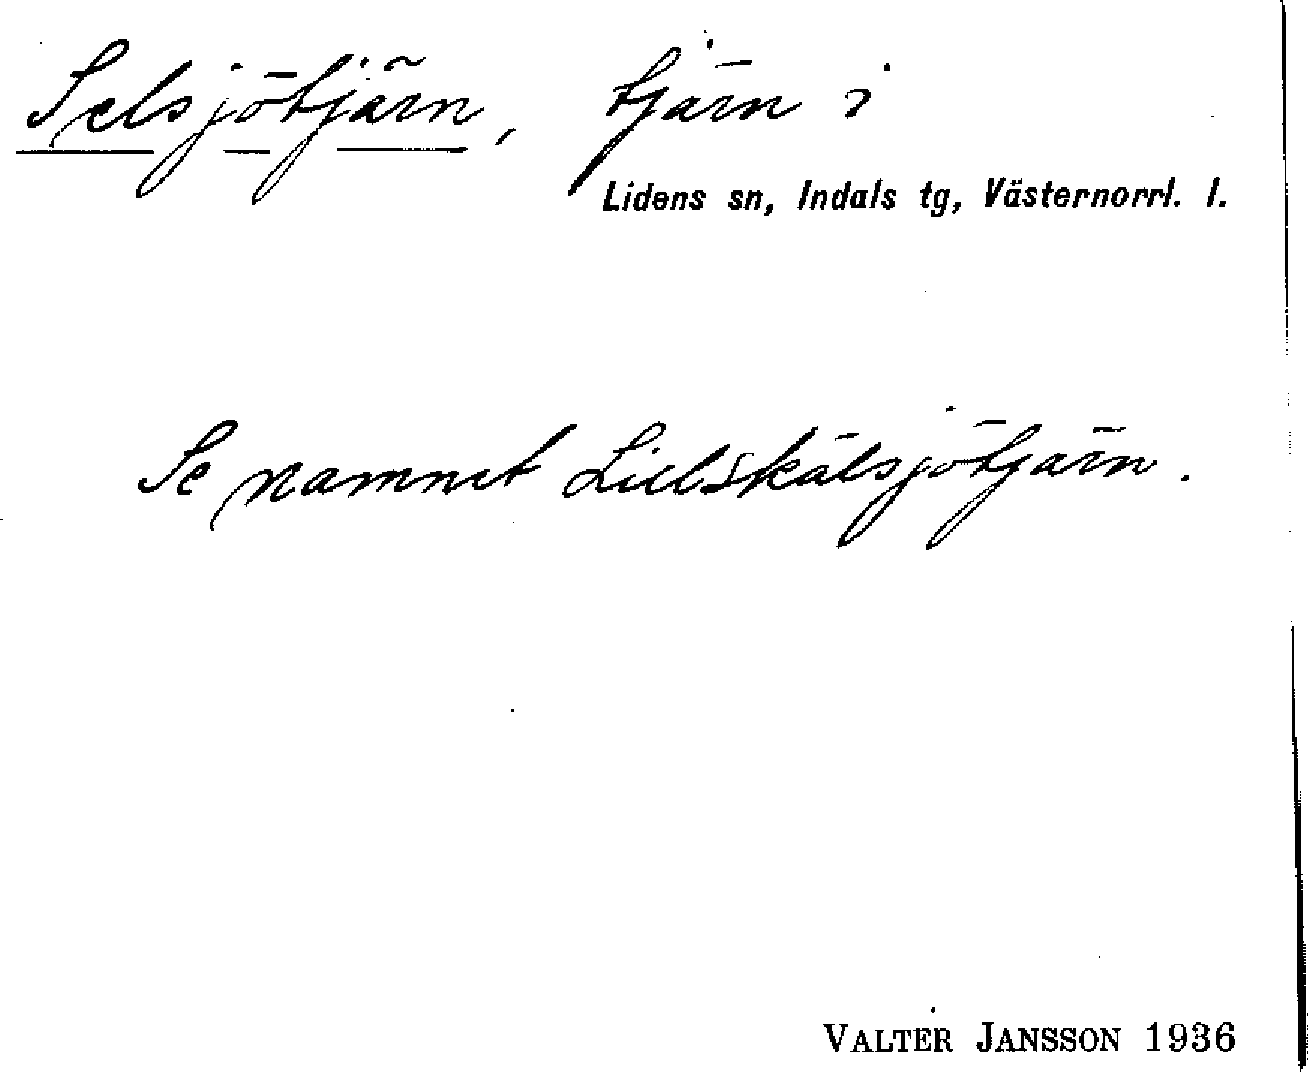 Selsjötjärn, tjärn i
Lidens sn, Indals tg, Västernorrl. l.
Se namnet Lillskälsjötjärn.
VALTER JANSSON 1936